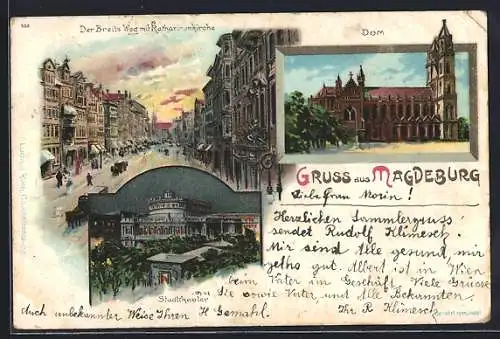 Der Breite Weg mit Katharinenkirche
Dom
Gruss aus Magdeburg
Liebe Frau Morin!
Herzlichen Sammlergruss
sendet Rudolf Klimesch.
Mir sind Alle gesund mir
gehts gut. Albert ist in Wien
beim Vater im Geschäft. Viele Grüsse
an Sie sowie Vater und Alle Bekannten.
Stadttheater
Auch unbekannter Weise Ihren H Gemahl.
Ihr R Klimesch